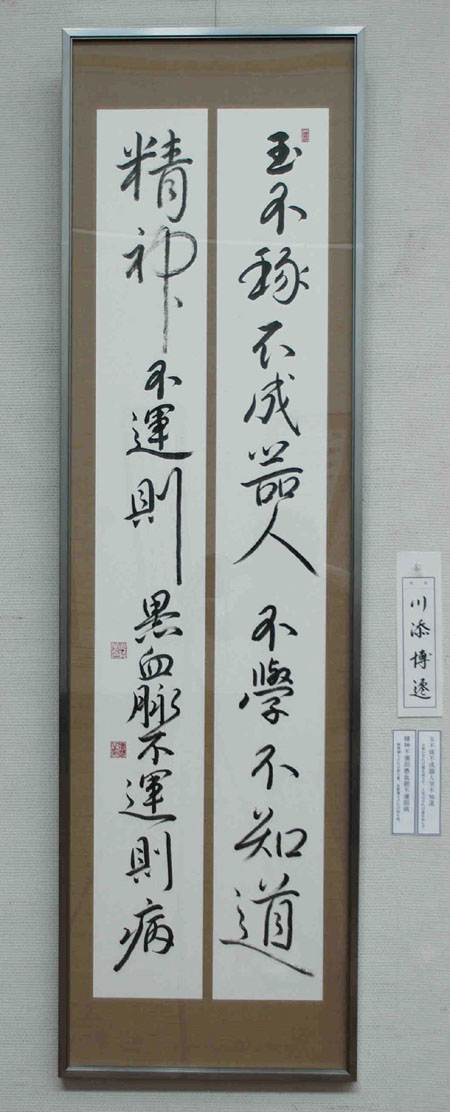 玉不琢不成器人不學不知道
精神不運則愚血脉不運則病
川添博遷
玉不琢不成器人不学不知道
精神不運則愚血脈不運則病